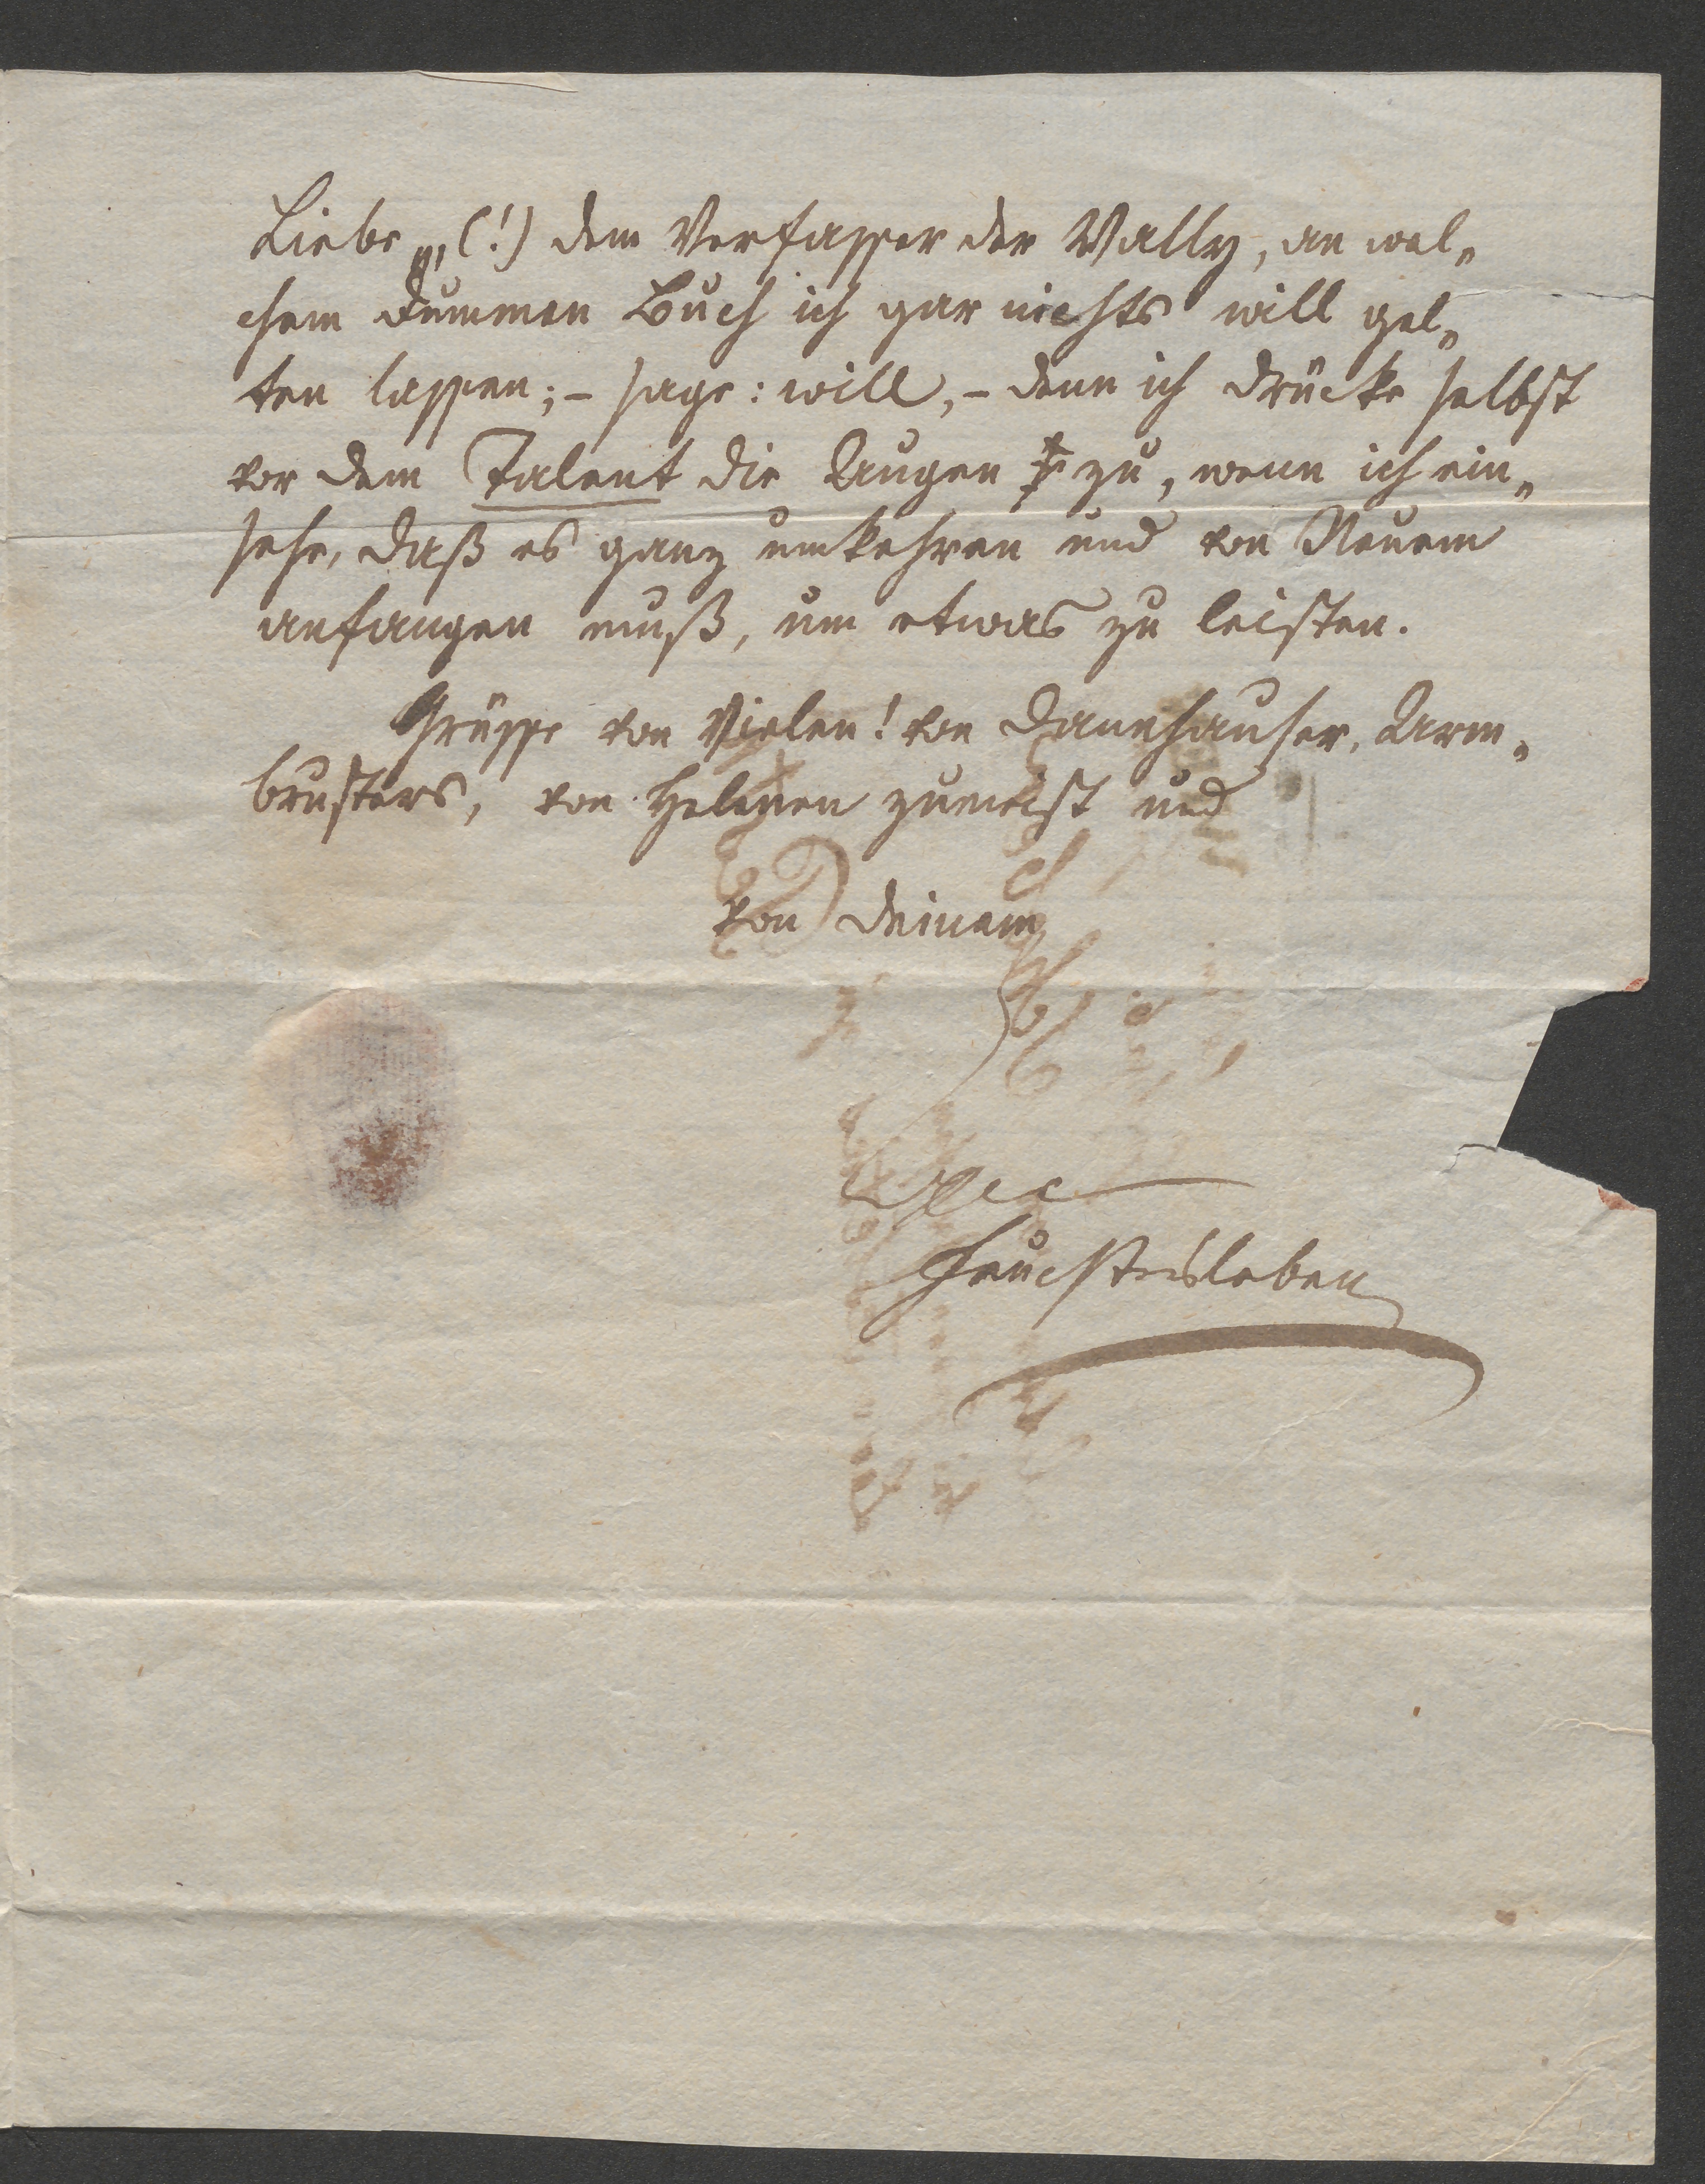 Liebe „ (!) dem Verfasser der Wally, an wel„
chem dummen Buch ich gar nichts will gel„
ten lassen; – sage: will, – denn ich drücke selbst
vor dem Talent die Augen zu, wenn ich ein„
sehe, daß es ganz umkehren und von Neuem
anfangen muß, um etwas zu leisten.
Grüsse von Vielen! von Dannhauser, Arm„
brusters, von Helenen zumeist und
von Deinem
Feuchtersleben